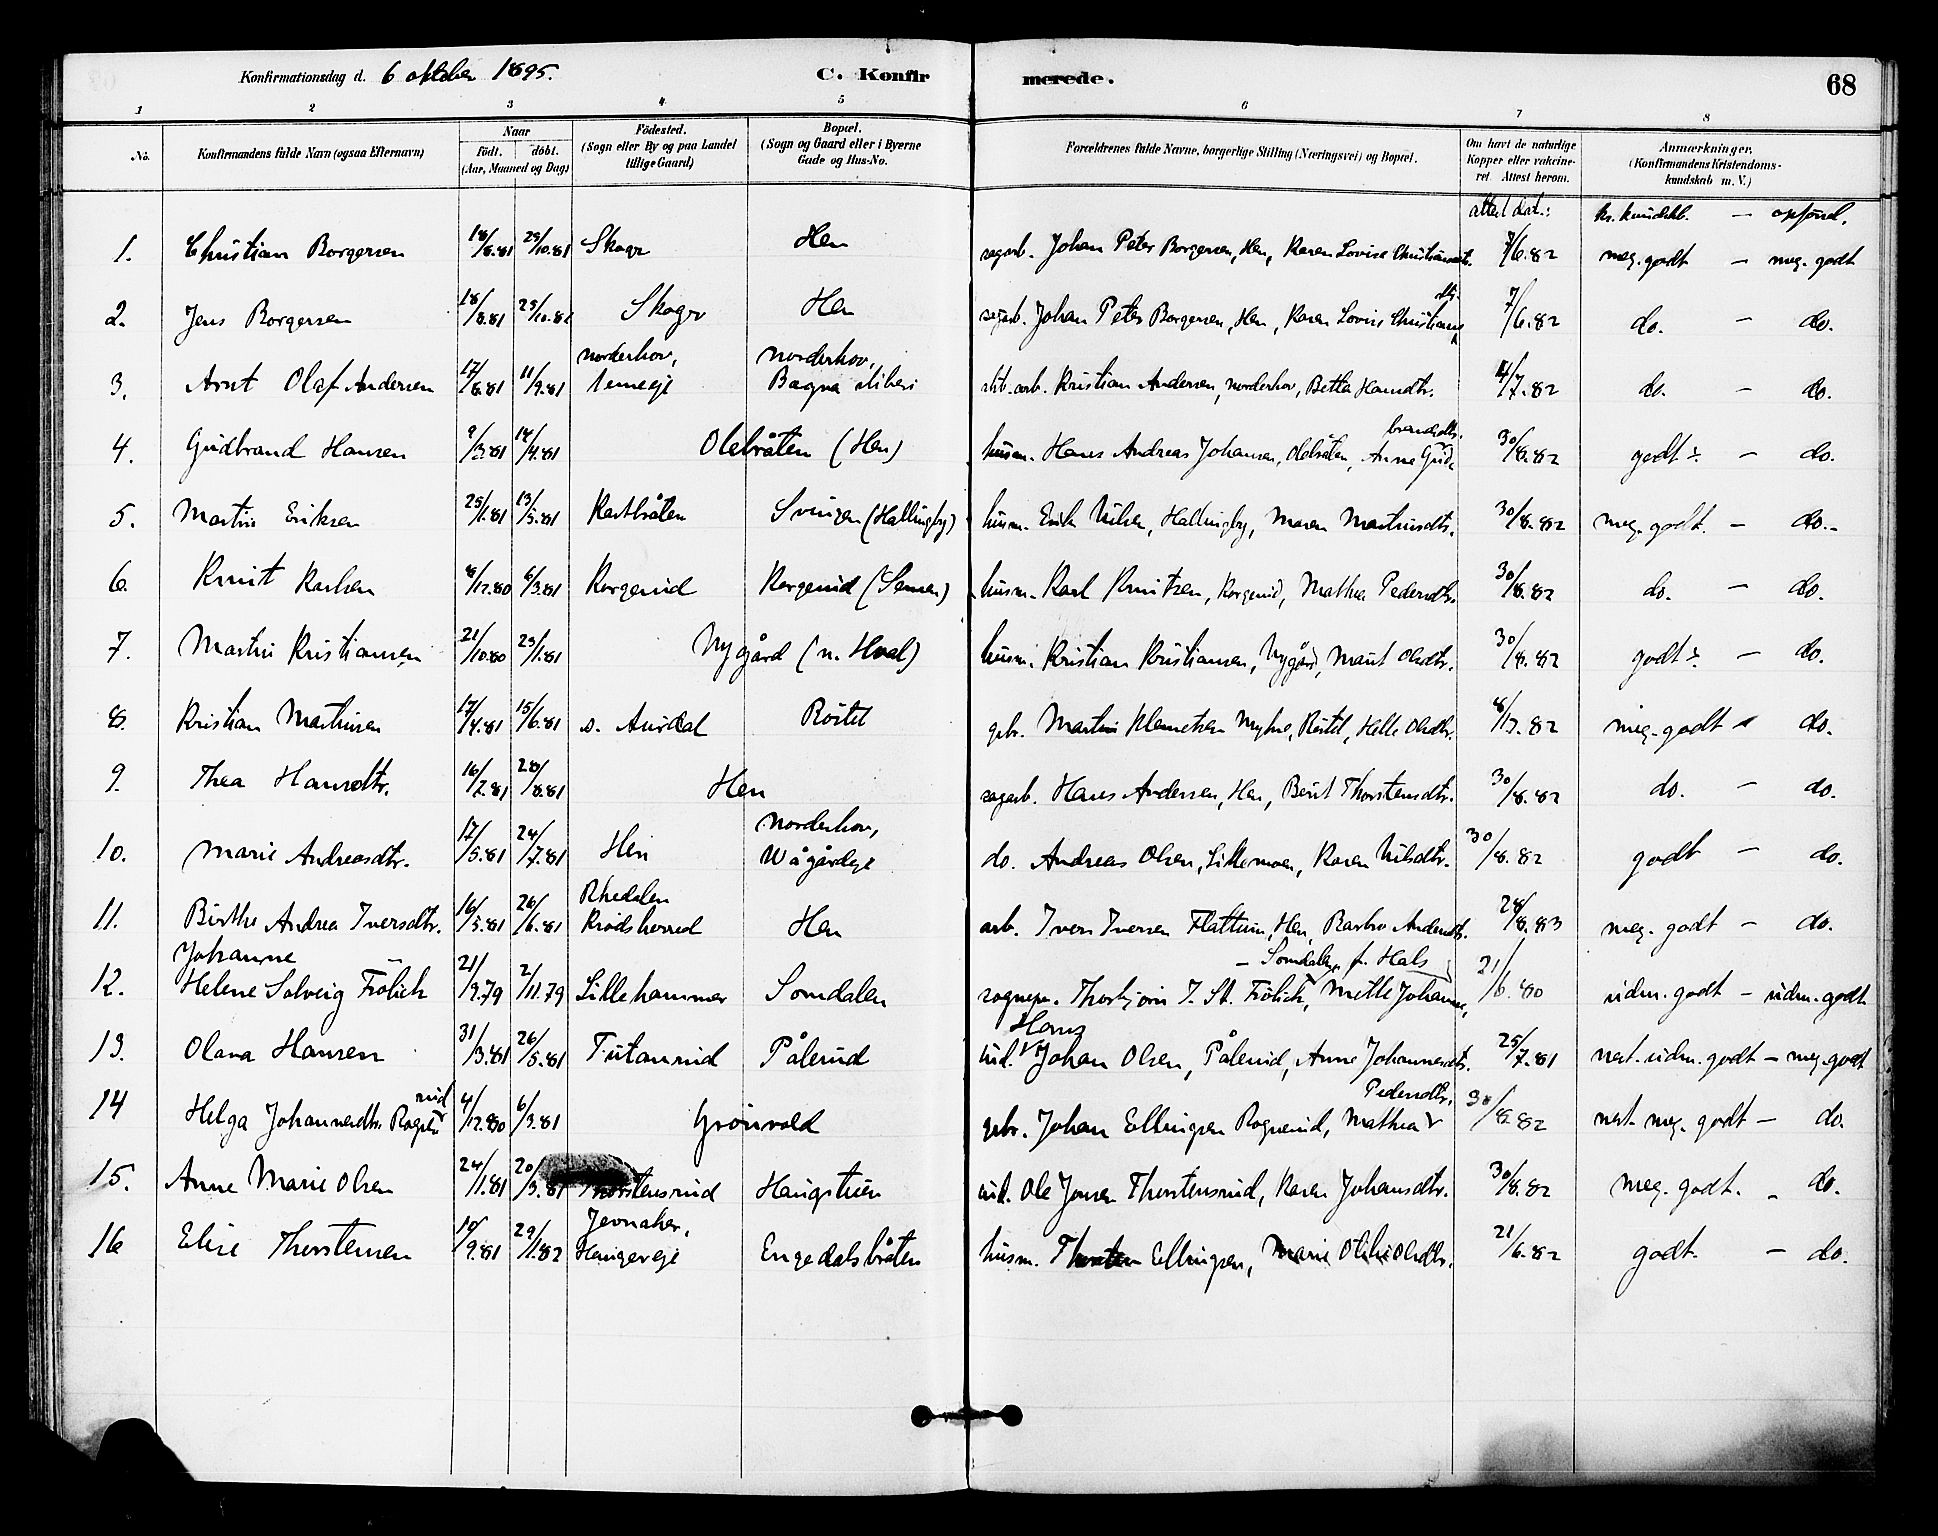 Konfirmationsdag d. 6 oktober 1895. C. Konfirmerede. 68
1 2 3 4 5 6 7 8
No. Konfirmandens fulde Navn (ogsaa Efternavn) Naar født. døbt. (Aar, Maaned og Dag) Födested. (Sogn eller By og paa Landet tillige Gaard) Bopæl. (Sogn og Gaard eller i Byerne Gade og Hus-No. Forældrenes fulde Navne, borgerlige Stilling (Næringsvei) og Bopæl. Om havt de naturlige Kopper eller vakcineret. Attest herom. Anmærkninger. (Konfirmandens Kristendomskundskab m. V.)
attest dat.: kr. kundskb. — opførsel.
1. Christian Borgersen 18/8.81 23/10.81 Skoger Hen sagarb. Johan Peter Borgersen, Hen, Karen Lovise Christiansdtr. 7/6.82 meg. godt — meg. godt
2. Jens Borgersen 18/8.81 23/10.81 Skoger Hen sagarb. Johan Peter Borgersen, Hen, Karen Lovise Christiansdtr. 7/6.82 do. — do.
3. Arnt Olaf Andersen 17/6.81 11/9.81 norderhov, norderhov, Bagna sliberi slib.arb. Kristian Andersen, norderhov, Betha Hansdtr. 4/7.82 do. — do.
4. Gudbrand Hansen 9/3.81 14/4.81 Olebråten (Hen) husm. Hans Andreas Johansen, Olebråten, Anne Gudbrandsdtr. 30/8.82 godt ÷ — do.
5. Martin Eriksen 25/1.81 13/3.81 Svingen (Hallingby) husm. Erik Nilsen, Hallingby, Maren Martinsdtr. 30/8.82 meg. godt. — do.
6. Knut Karlsen 8/12.80 6/3.81 Korgerud Korgerud (Semen) husm. Karl Knutsen, Korgerud, Mathea Pedersdtr. 30/8.82 do. — do.
7. Martin Kristiansen 21/10.80 23/1.81 Nygård (n. Hval) husm. Kristian Kristiansen, Nygård, Marit Olsdtr. 30/8.82 godt ÷ — do.
8. Kristian Martinsen 17/4.81 15/6.81 s. Aurdal gbr. Martin Klemetsen Myhre, Helle Olsdtr. meg. godt — do.
9. Thea Hansdtr. 16/2.81 28/8.81 Hen sagarb. Hans Andersen, Hen, Berit Thorstensdtr. 30/8.82 do. — do.
10. Marie Andreasdtr. 17/5.81 24/7.81 Hen norderhov, Wågårdeje do. Andreas Olsen, Karen Nilsdtr. 30/8.82 godt — do.
11. Birthe Andrea Iversdtr. 16/5.81 26/6.81 Krødsherred Hen arb. Iver Iversen Flattum, Hen, Barbro Andersdtr. 28/8.83 meg. godt — do.
12. Johanne Helene Solveig Frölich 21/9.79 2/11.79 Lillehammer Somdalen sognepr. Thorbjørn J. St. Frölich, Somdalen, Mette Johanne, f. Hals 21/6.80 udm. godt — udm. godt
13. Olava Hansen 31/3.81 26/5.81 Tutanrud Pålerud ind. Hans Johan Olsen, Pålerud, Anne Johannesdtr. 25/7.81 nest. udm. godt — meg. godt
14 Helga Johannesdtr. Rognerud 4/12.80 6/3.81 Grönvold gbr. Johan Ellingsen Rognerud, Mathea Pedersdtr. 30/8.82 nest. meg. godt — do.
15. Anne Marie Olsen 24/1.81 20/3.81 Thorstensrud Haugstuen ind. Ole Jonsen Thorstensrud, Karen Johansdtr. 30/8.82 meg. godt. — do.
16 Elise Thorstensen 10/9.81 29/1.82 Jevnaker, Haugereje Engedalsbråten husm. Thorsten Ellingsen, Marie Othilie Olsdtr. 21/6.82 godt. — do.